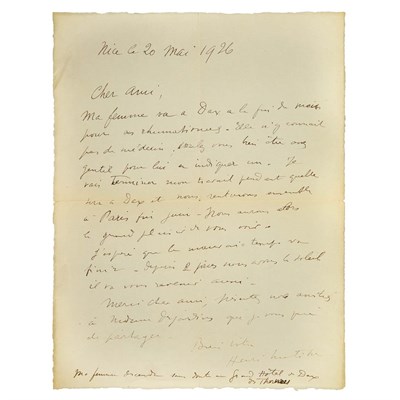 Nice le 20 Mai 1926
Cher Ami,
Ma femme va à Dax à la fin de mois
pour ses rhumatismes. Elle n'y connait
pas de médecin, voulez vous bien être
gentil pour lui en indiquer un. Je
vais terminer mon travail pendant qu'elle
sera à Dax et nous rentrerons ensemble
à Paris fin juin. Nous aurons alors
le grand plaisir de vous voir.
J'espère que le mauvais temps va
finir. depuis 2 jours nous avons le soleil
il va vous revenir aussi.
Merci cher ami, amitiés
à Madame Desjardins que je vous prie
de partager.
Bien votre
Henri Matisse
Ma femme descendra sans doute au Grand Hôtel à Dax
des Thermes